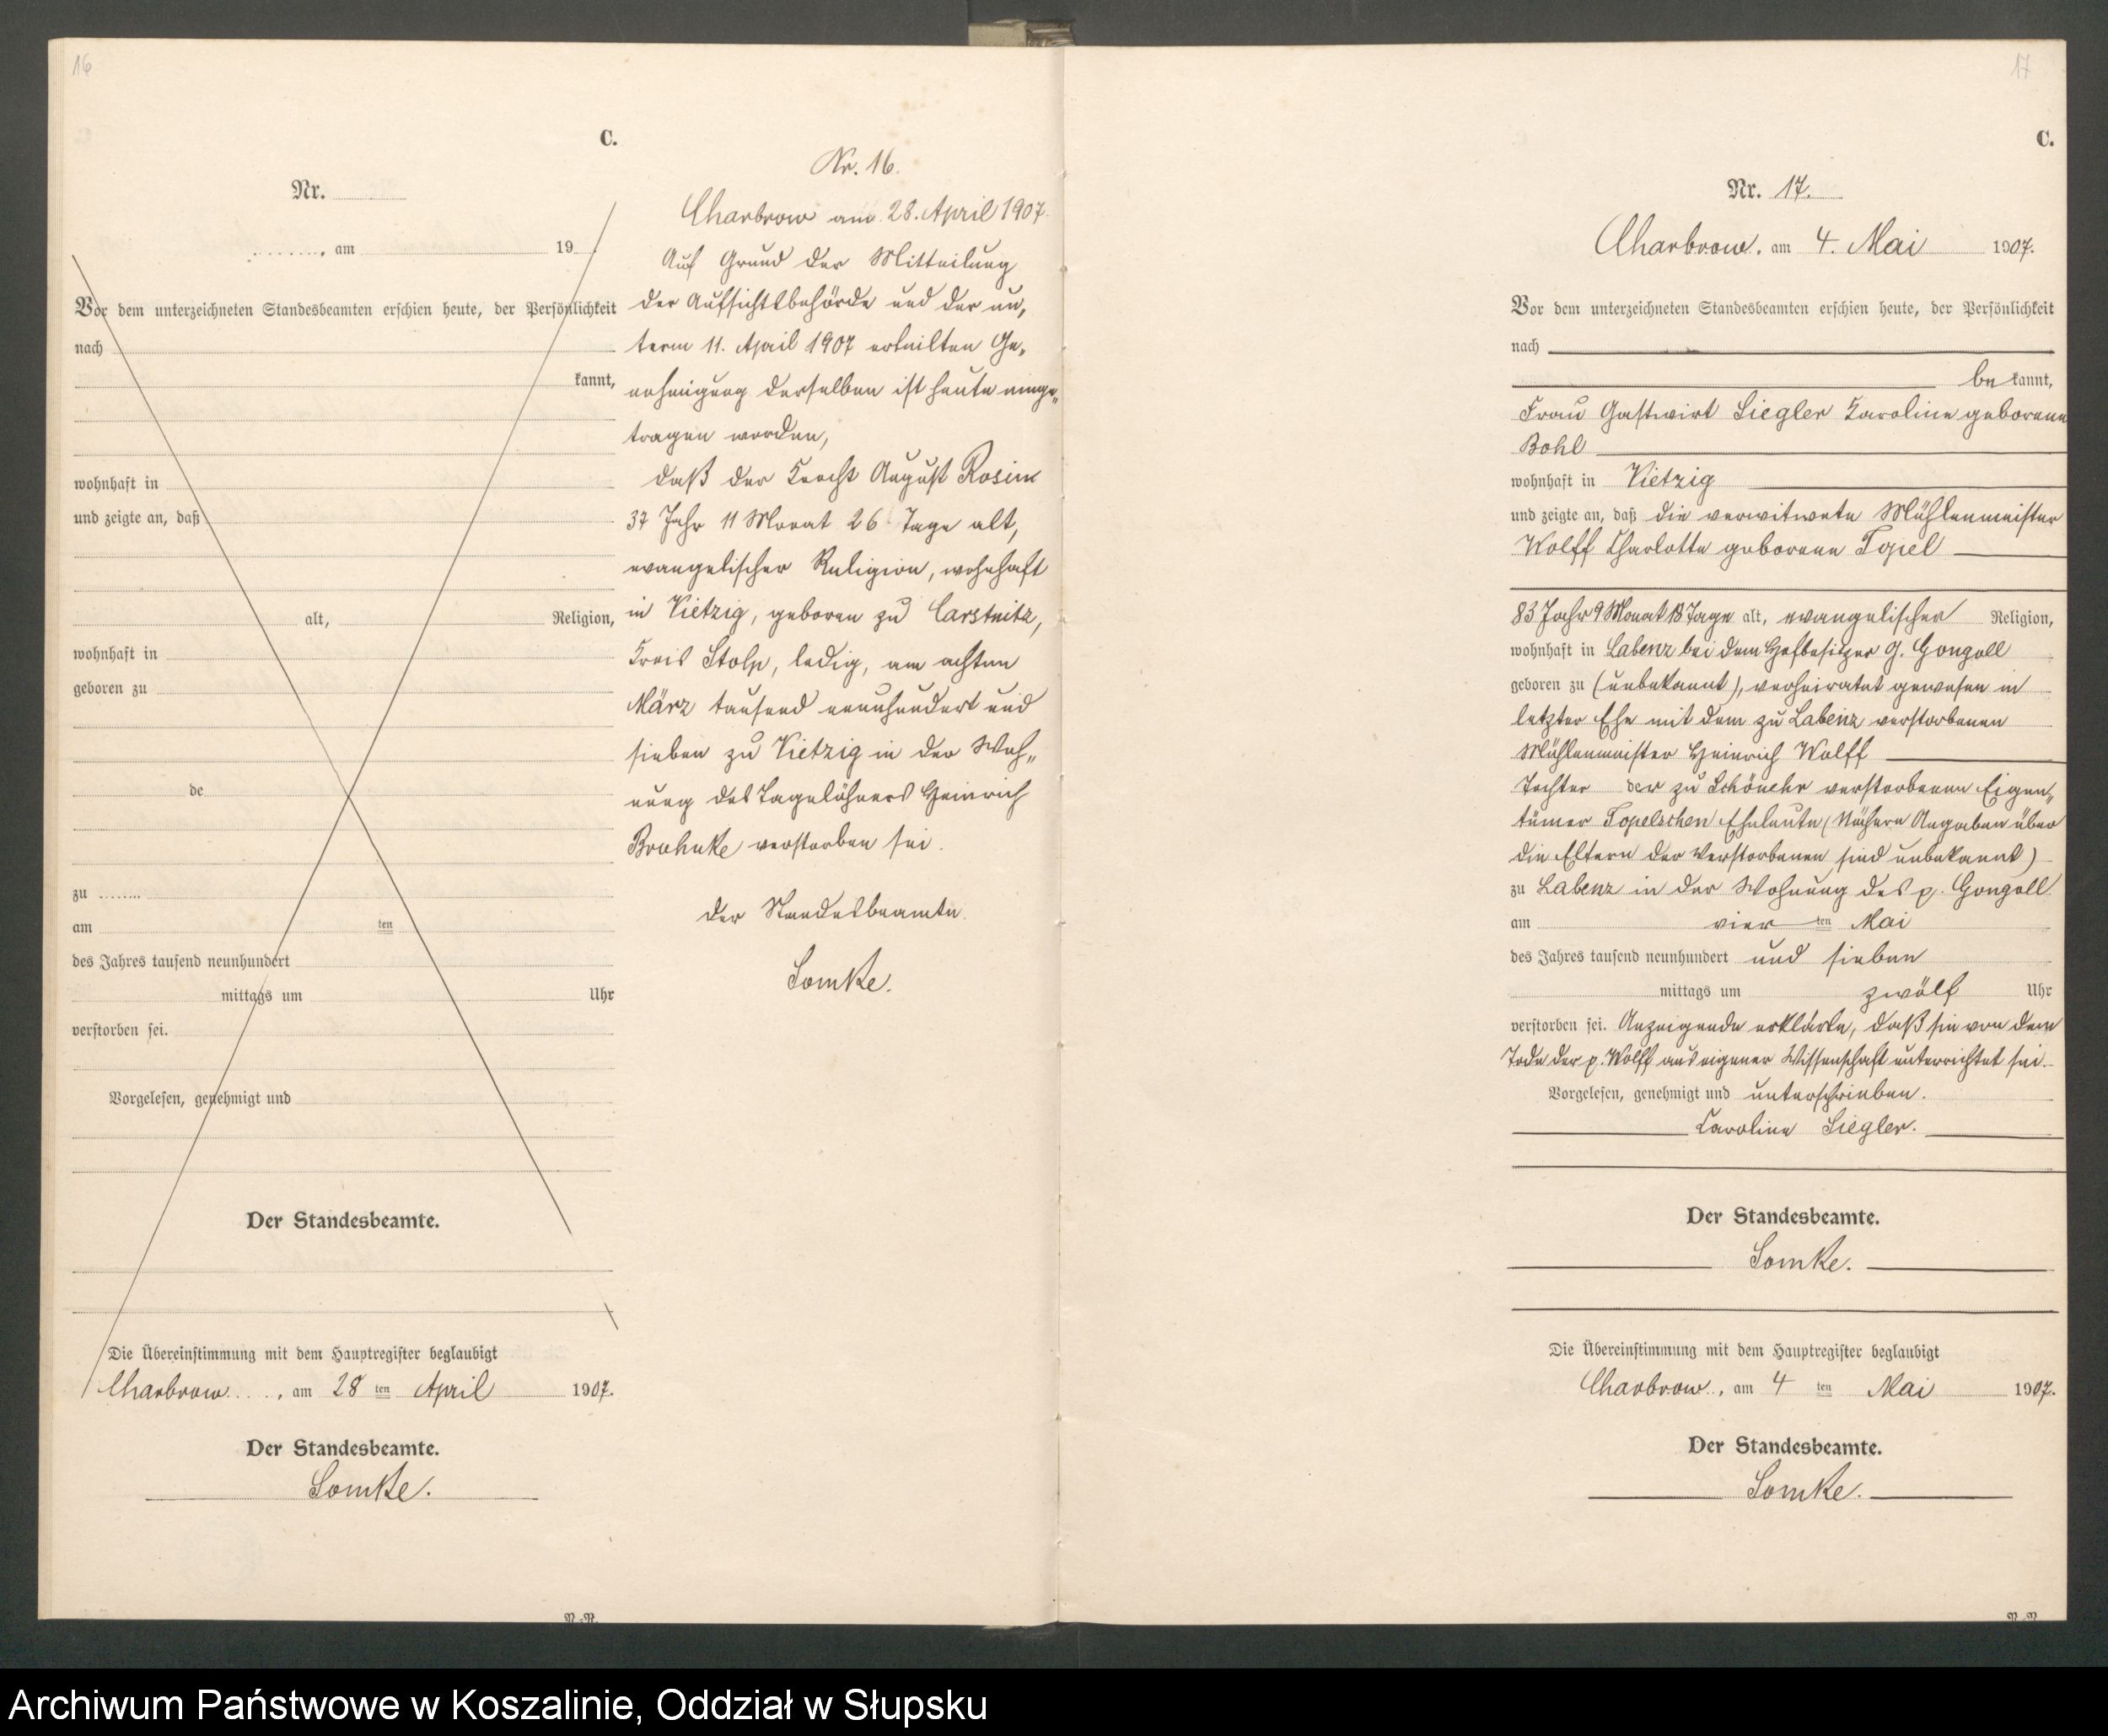 16
C.
Nr.
, am 19
Vor dem unterzeichneten Standesbeamten erschien heute, der Persönlichkeit
nach
kannt,
wohnhaft in
und zeigte an, daß
alt, Religion,
wohnhaft in
geboren zu
de
zu
am ten
des Jahres tausend neunhundert
mittags um Uhr
verstorben sei.
Vorgelesen, genehmigt und
Der Standesbeamte.
Die Übereinstimmung mit dem Hauptregister beglaubigt
Charbrow, am 28ten April 1907.
Der Standesbeamte.
Lomke.
Nr. 16.
Charbrow am 28. April 1907.
Auf Grund der Mitteilung
der Aufsichtsbehörde und der un„
term 11. April 1907 erteilten Ge„
nehmigung derselben ist heute einge„
tragen worden,
daß der Knecht August Rosin
37 Jahr 11 Monat 26 Tage alt,
evangelischer Religion, wohnhaft
in Vietzig, geboren zu Carstnitz,
Kreis Stolp, ledig, am achten
März tausend neunhundert und
sieben zu Vietzig in der Woh„
nung des Tagelöhners Heinrich
Brahnke verstorben sei.
Der Standesbeamte.
Lomke.
N.-N.
17
C.
Nr. 17.
Charbrow, am 4. Mai 1907.
Vor dem unterzeichneten Standesbeamten erschien heute, der Persönlichkeit
nach
bekannt,
Frau Gastwirt Siegler Karoline geborene
Bohl
wohnhaft in Vietzig
und zeigte an, daß die verwitwete Mühlenmeister
Wolff Charlotte geborene
83 Jahr 9 Monat 18 Tage alt, evangelischer Religion,
wohnhaft in Labenz bei dem Hofbesitzer G. Gongoll
geboren zu (unbekannt), verheiratet gewesen in
letzter Ehe mit dem zu Labenz verstorbenen
Mühlenmeister Heinrich Wolff
Tochter der zu Schönehr verstorbenen Eigen„
tümer Topelschen Eheleute (Nähere Angaben über
die Eltern der Verstorbenen sind unbekannt)
zu Labenz in der Wohnung des p. Gongoll
am vierten Mai
des Jahres tausend neunhundert und sieben
mittags um zwölf Uhr
verstorben sei. Anzeigende erklärte, daß sie von dem
Tode der p. Wolff aus eigener Wissenschaft unterrichtet sei.
Vorgelesen, genehmigt und unterschrieben.
Karoline Siegler.
Der Standesbeamte.
Lomke.
Die Übereinstimmung mit dem Hauptregister beglaubigt
Charbrow, am 4ten Mai 1907.
Der Standesbeamte.
Lomke.
Archiwum Państwowe w Koszalinie, Oddział w Słupsku